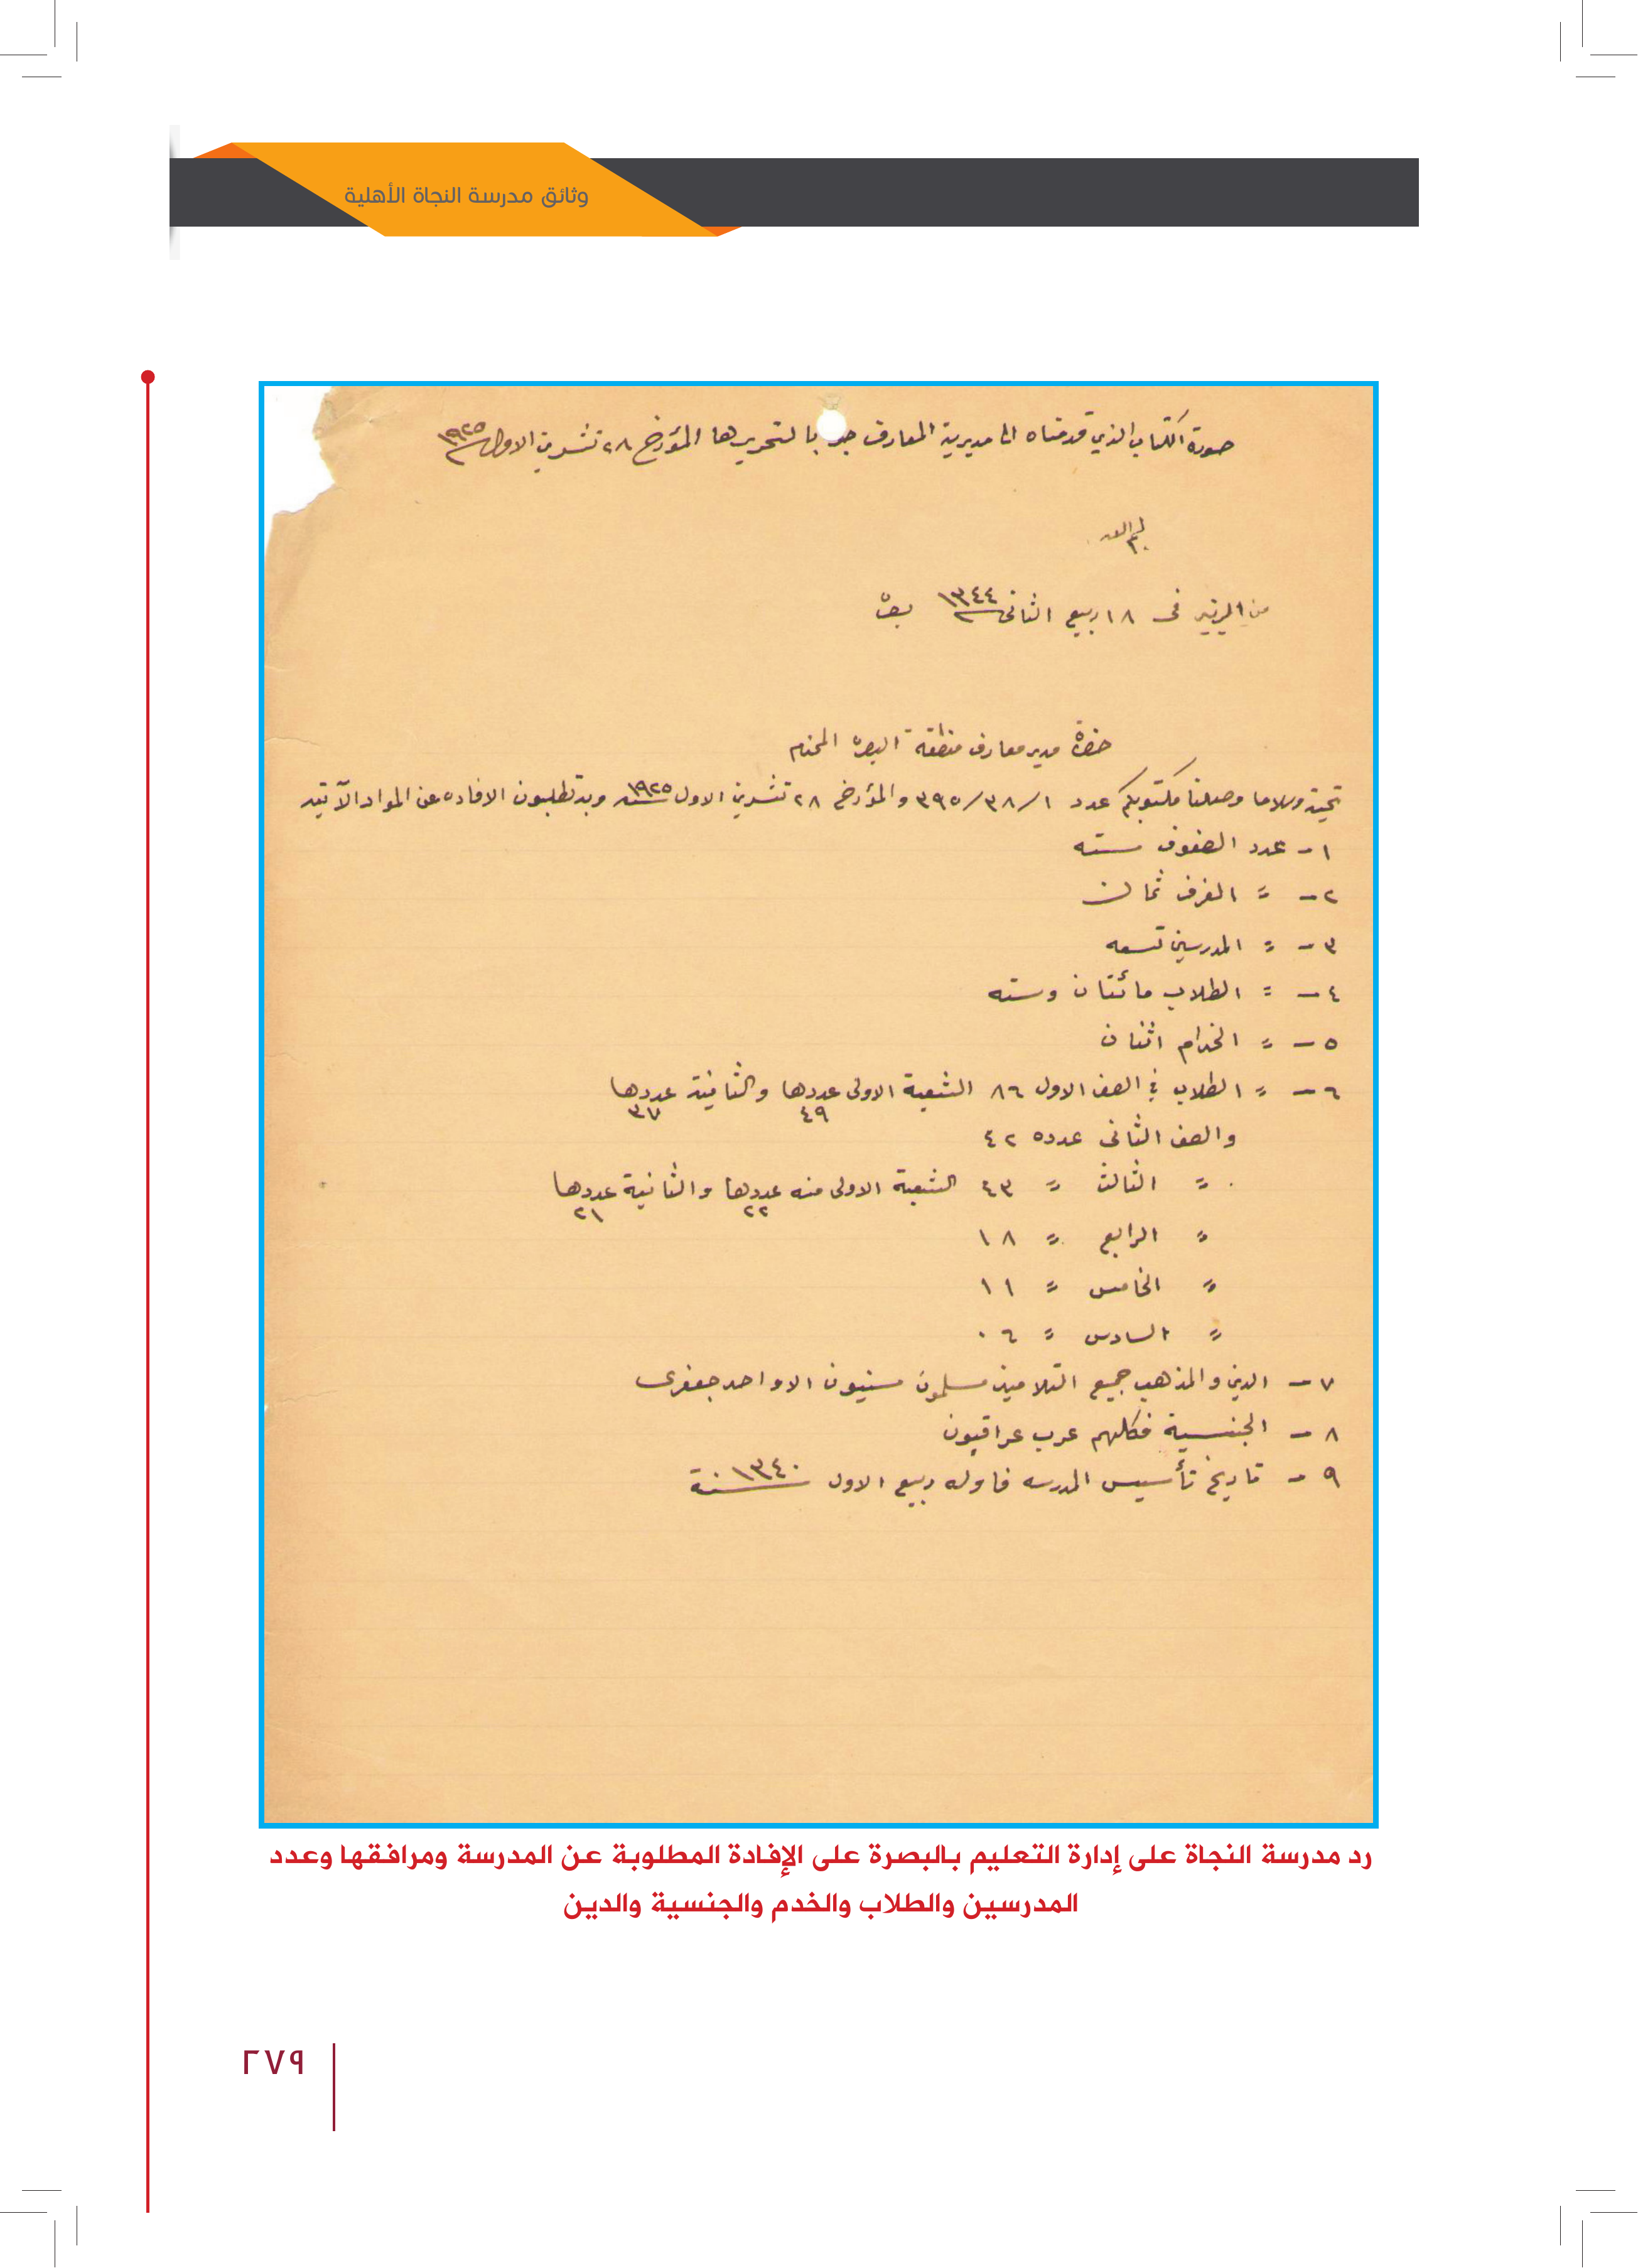 وثائق مدرسة النجاة الأهلية
صورة الكتاب الذي قدمناه الى مديرية المعارف جوابا لتحريرها المؤرخ ٢٨ تشرين الاول ١٩٢٥
من الزبير فى ١٨ ربيع الثانى ١٣٤٤ بصرة
حضرة مدير معارف منطقة البصرة المحترم
تحية وسلاما وصلنا مكتوبكم عدد ٣٩٥/٣٨/١ والمؤرخ ٢٨ تشرين الاول سنه ١٩٢٥ وبه تطلبون الافاده عن المواد الآتيه
١ - عدد الصفوف سته
٢ - = الغرف ثمان
٣ - = المدرسين تسعه
٤ - = الطلاب مائتان وسته
٥ - = الخدام اثنان
٦ - = الطلاب في الصف الاول ٨٦ الشعبة الاولى عددها ٤٩ والثانية عددها ٣٧
والصف الثانى عدده ٤٢
= الثالث = ٤٣ الشعبة الاولى منه عددها ٢٢ والثانية عددها ٢١
= الرابع = ١٨
= الخامس = ١١
= السادس = ٠٦
٧ - الدين والمذهب جميع التلاميذ مسلمون سنيون الا واحد جعفرى
٨ - الجنسية فكلهم عرب عراقيون
٩ - تاريخ تأسيس المدرسه فاوله ربيع الاول سنة ١٣٤٠
رد مدرسة النجاة على إدارة التعليم بالبصرة على الإفادة المطلوبة عن المدرسة ومرافقها وعدد
المدرسين والطلاب والخدم والجنسية والدين
٢٧٩